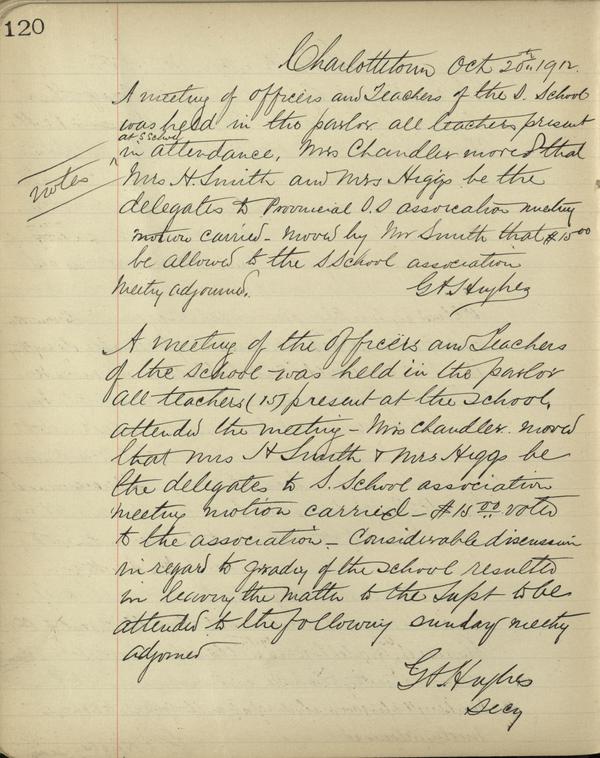 120
Charlottetown Oct 20th 1912.
A meeting of officers and Teachers of the S. School
was held in the parlor all teachers present
at S School
in attendance. Mrs Chandler moved that
notes
Mrs H. Smith and Mrs Higgs be the
delegates to Provincial S.S association meeting
motion carried - moved by Mr Smith that $15.00
be allowed to the S School association
Meeting adjourned.
G A S Hughes
A meeting of the officers and Teachers
of the School was held in the parlor
all teachers (15) present at the school,
attended the meeting - Mrs Chandler moved
that Mrs H Smith & Mrs Higgs be
the delegates to S. School association
meeting motion carried - $15 00 voted
to the association - Considerable discussion
in regard to grading of the school resulted
in leaving the matter to the Supt to be
attended to the following Sunday meeting
adjorned
Hughes
Secy